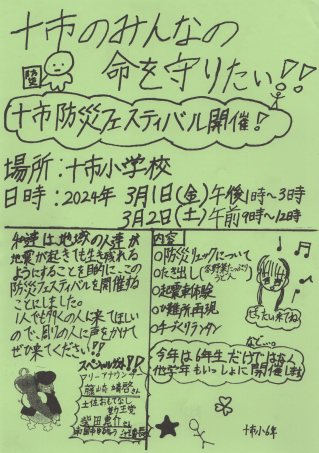 十市のみんなの
命を守りたい!!
防
十市防災フェスティバル開催!
場所:十市小学校
日時:2024年 3月1日(金)午後1時〜3時
3月2日(土)午前9時〜12時
私達は地域の人達が
地震が起きても生き残れる
ようにすることを目的に、この
防災フェスティバルを開催する
ことにしました。
1人でも多くの人に来てほしい
ので、周りの人に声をかけて
ぜひ来てください!!
スペシャルゲスト!!
フリーアナウンサー
さん
土佐おもてなし
勤王党
柴田恵介さん
内容
○防災リュックについて
○たき出し(冬野菜たっぷりうどん)
○起震車体験
○ひ難所再現
ぜったい来てね
など…。
今年は6年生だけではなく
他学年もいっしょに開催します
十市小6年